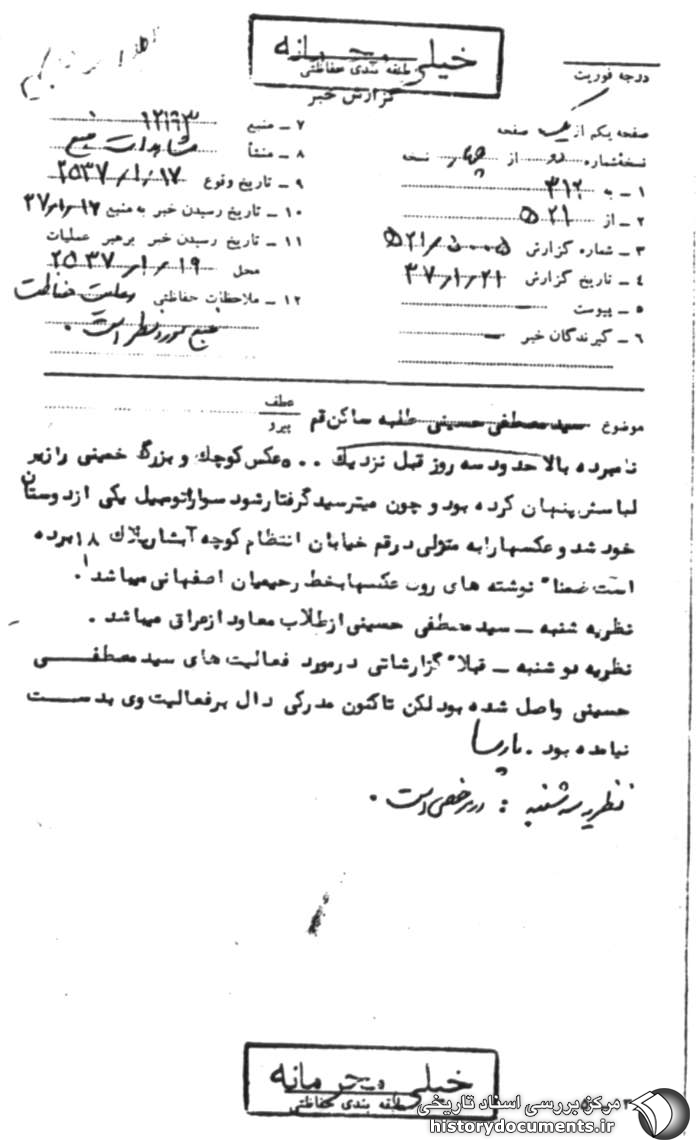 خیلی محرمانه
طبقه بندی حفاظتی
گزارش خبر
درجه فوریت
صفحه یکم از یک صفحه
نسخه شماره دو از چهار نسخه
۱ ـ به ۳۱۲
۲ ـ از ۵۲۱
۳ ـ شماره گزارش ۵۲۱/۵۰۰۵
۴ ـ تاریخ گزارش ۳۷/۱/۲۱
۵ ـ پیوست ـ
۶ ـ گیرندگان خبر ـ
۷ ـ منبع ۱۲۱۹۳
۸ ـ منشأ مشاهدات منبع
۹ ـ تاریخ وقوع ۲۵۳۷/۱/۱۷
۱۰ ـ تاریخ رسیدن خبر به منبع ۳۷/۱/۱۷
۱۱ ـ تاریخ رسیدن خبر برهبر عملیات
محل ۲۵۳۷/۱/۱۹
۱۲ ـ ملاحظات حفاظتی رعایت حفاظت
منبع مورد نظر است.
موضوع سید مصطفی حسینی طلبه ساکن قم
عطف
پیرو
نامبرده بالا حدود سه روز قبل نزدیک ۵۰۰ عکس کوچک و بزرگ خمینی را زیر
لباسش پنهان کرده بود و چون میترسید گرفتار شود سوار اتومبیل یکی از دوستان
خود شد و عکسها را به منزلی در قم خیابان انتظام کوچه آبشار پلاک ۱۸ برده
است ضمناً نوشته های روی عکسها بخط رحیمیان اصفهانی میباشد.
نظریه شنبه ـ سید مصطفی حسینی از طلاب معاود از عراق میباشد.
نظریه دو شنبه ـ قبلاً گزارشاتی در مورد فعالیت های سید مصطفی
حسینی واصل شده بود لکن تاکنون مدرکی دال بر فعالیت وی بدست
نیامده بود. پارسا
نظریه سه شنبه : در مرخصی است.
خیلی محرمانه
طبقه بندی حفاظتی
مرکز بررسی اسناد تاریخی
historydocuments.ir